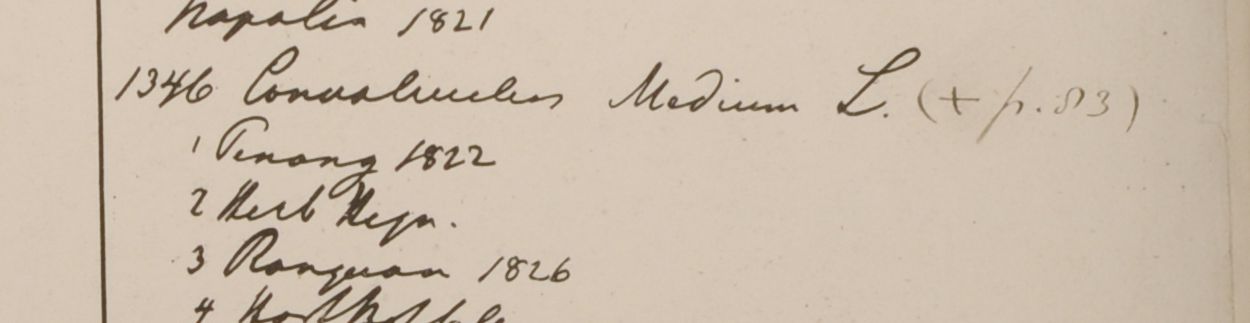 Napalia 1821
1346 Convolvulus Medium L. (+ p. 83)
1 Penang 1822
2 Herb Heyn.
3 Rangoon 1826
4